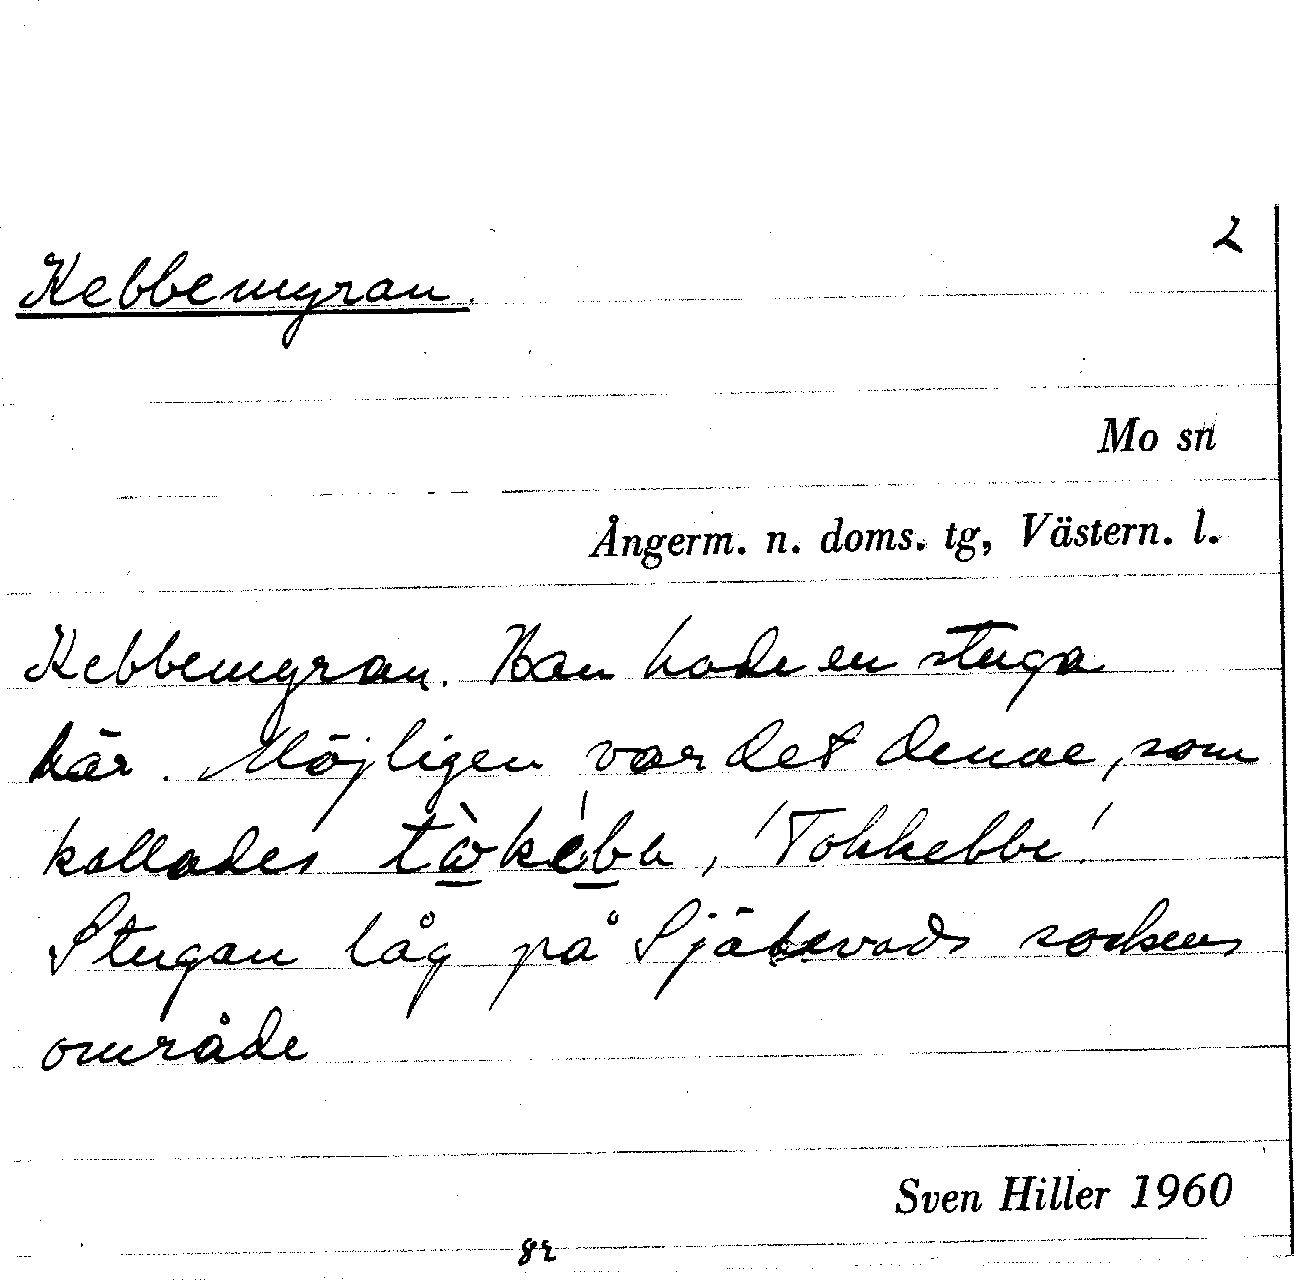 2
Kebbemyran.
Mo sn
Ångerm. n. doms. tg, Västern. l.
Kebbemyran. Han hade en stuga
här. Möjligen var det denne, som
kallades 'Tokkebbe'.
Stugan låg på Själevads sockens
område
Sven Hiller 1960
82